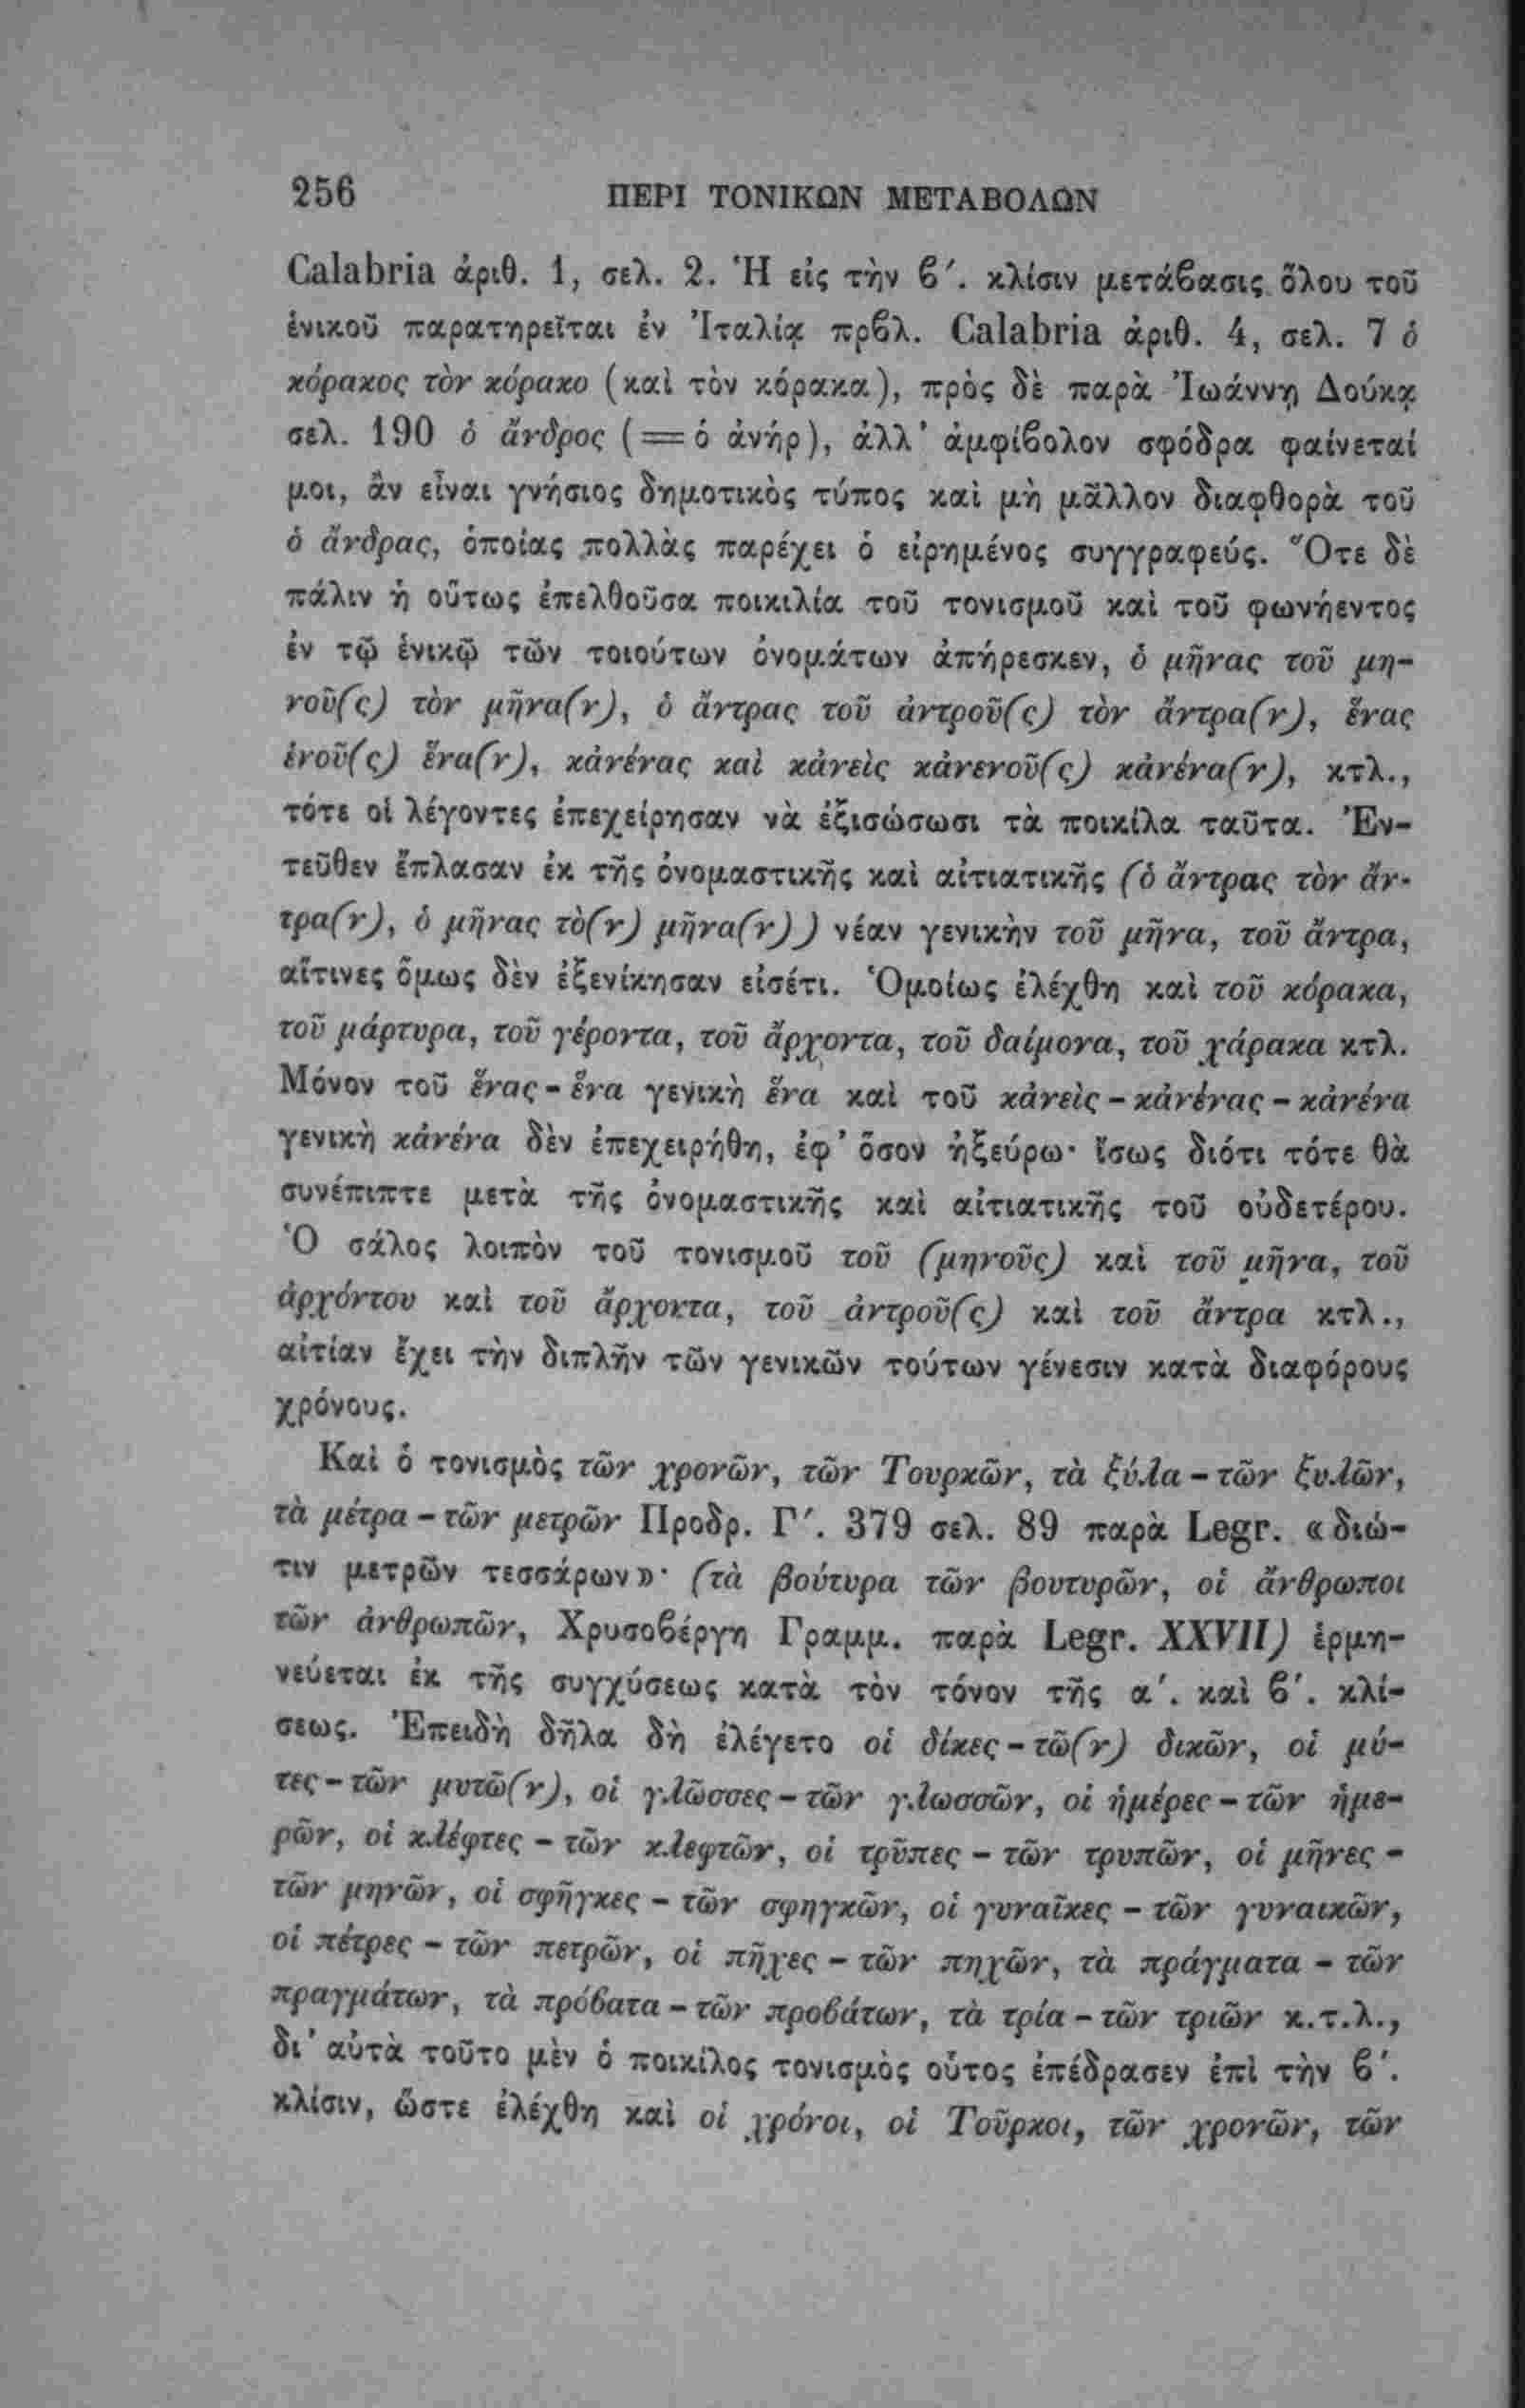 256 ΠΕΡΙ ΤΟΝΙΚΩΝ ΜΕΤΑΒΟΛΩΝ
Calabria ἀριθ. 1, σελ. 2. Ἡ εἰς τὴν ϐ΄. κλίσιν μετάϐασις ὅλου τοῦ
ἑνικοῦ παρατηρεῖται ἐν Ἰταλίᾳ πρϐλ. Calabria ἀριθ. 4, σελ. 7 ὁ
κόρακος τὸν κόρακο (καὶ τὸν κόρακα), πρὸς δὲ παρὰ Ἰωάννῃ Δούκᾳ
σελ. 190 ὁ ἄνδρος (=ὁ ἀνήρ), ἀλλ' ἀμφίϐολον σφόδρα φαίνεταί
μοι, ἂν εἶναι γνήσιος δημοτικὸς τύπος καὶ μὴ μᾶλλον διαφθορὰ τοῦ
ὁ ἄνδρας, ὁποίας πολλὰς παρέχει ὁ εἰρημένος συγγραφεύς. Ὅτε δὲ
πάλιν ἡ οὕτως ἐπελθοῦσα ποικιλία τοῦ τονισμοῦ καὶ τοῦ φωνήεντος
ἐν τῷ ἑνικῷ τῶν τοιούτων ὀνομάτων ἀπήρεσκεν, ὁ μῆνας τοῦ μη-
νοῦ(ς) τὸν μῆνα(ν), ὁ ἄντρας τοῦ ἀντροῦ(ς) τὸν ἄντρα(ν), ἕνας
ἑνοῦ(ς) ἕνα(ν), κἀνένας καὶ κἀνεὶς κἀνενοῦ(ς) κἀνένα(ν), κτλ.,
τότε οἱ λέγοντες ἐπεχείρησαν νὰ ἐξισώσωσι τὰ ποικίλα ταῦτα. Ἐν-
τεῦθεν ἔπλασαν ἐκ τῆς ὀνομαστικῆς καὶ αἰτιατικῆς (ὁ ἄντρας τὸν ἄν-
τρα(ν), ὁ μῆνας τὸ(ν) μῆνα(ν)) νέαν γενικὴν τοῦ μῆνα, τοῦ ἄντρα,
αἵτινες ὅμως δὲν ἐξενίκησαν εἰσέτι. Ὁμοίως ἐλέχθη καὶ τοῦ κόρακα,
τοῦ μάρτυρα, τοῦ γέροντα, τοῦ ἄρχοντα, τοῦ δαίμονα, τοῦ χάρακα κτλ.
Μόνον τοῦ ἕνας - ἕνα γενικὴ ἕνα καὶ τοῦ κἀνεὶς - κἀνένας - κἀνένα
γενικὴ κἀνένα δὲν ἐπεχειρήθη, ἐφ' ὅσον ἠξεύρω· ἴσως διότι τότε θὰ
συνέπιπτε μετὰ τῆς ὀνομαστικῆς καὶ αἰτιατικῆς τοῦ οὐδετέρου.
Ὁ σάλος λοιπὸν τοῦ τονισμοῦ τοῦ (μηνοῦς) καὶ τοῦ μῆνα, τοῦ
ἀρχόντου καὶ τοῦ ἄρχοντα, τοῦ ἀντροῦ(ς) καὶ τοῦ ἄντρα κτλ.,
αἰτίαν ἔχει τὴν διπλῆν τῶν γενικῶν τούτων γένεσιν κατὰ διαφόρους
χρόνους.
Καὶ ὁ τονισμὸς τῶν χρονῶν, τῶν Τουρκῶν, τὰ ξύλα - τῶν ξυλῶν,
τὰ μέτρα - τῶν μετρῶν Προδρ. Γ΄. 379 σελ. 89 παρὰ Legr. «διώ-
τιν μετρῶν τεσσάρων»· (τὰ βούτυρα τῶν βουτυρῶν, οἱ ἄνθρωποι
τῶν ἀνθρωπῶν, Χρυσοϐέργη Γραμμ. παρὰ Legr. XXVII) ἑρμη-
νεύεται ἐκ τῆς συγχύσεως κατὰ τὸν τόνον τῆς α΄. καὶ ϐ΄. κλί-
σεως. Ἐπειδὴ δῆλα δὴ ἐλέγετο οἱ δίκες - τῶ(ν) δικῶν, οἱ μύ-
τες - τῶν μυτῶ(ν), οἱ γλῶσσες - τῶν γλωσσῶν, οἱ ἡμέρες - τῶν ἡμε-
ρῶν, οἱ κλέφτες - τῶν κλεφτῶν, οἱ τρῦπες - τῶν τρυπῶν, οἱ μῆνες -
τῶν μηνῶν, οἱ σφῆγκες - τῶν σφηγκῶν, οἱ γυναῖκες - τῶν γυναικῶν,
οἱ πέτρες - τῶν πετρῶν, οἱ πῆχες - τῶν πηχῶν, τὰ πράγματα - τῶν
πραγμάτων, τὰ πρόϐατα - τῶν προϐάτων, τὰ τρία - τῶν τριῶν κ.τ.λ.,
δι' αὐτὰ τοῦτο μὲν ὁ ποικίλος τονισμὸς οὗτος ἐπέδρασεν ἐπὶ τὴν ϐ΄.
κλίσιν, ὥστε ἐλέχθη καὶ οἱ χρόνοι, οἱ Τοῦρκοι, τῶν χρονῶν, τῶν